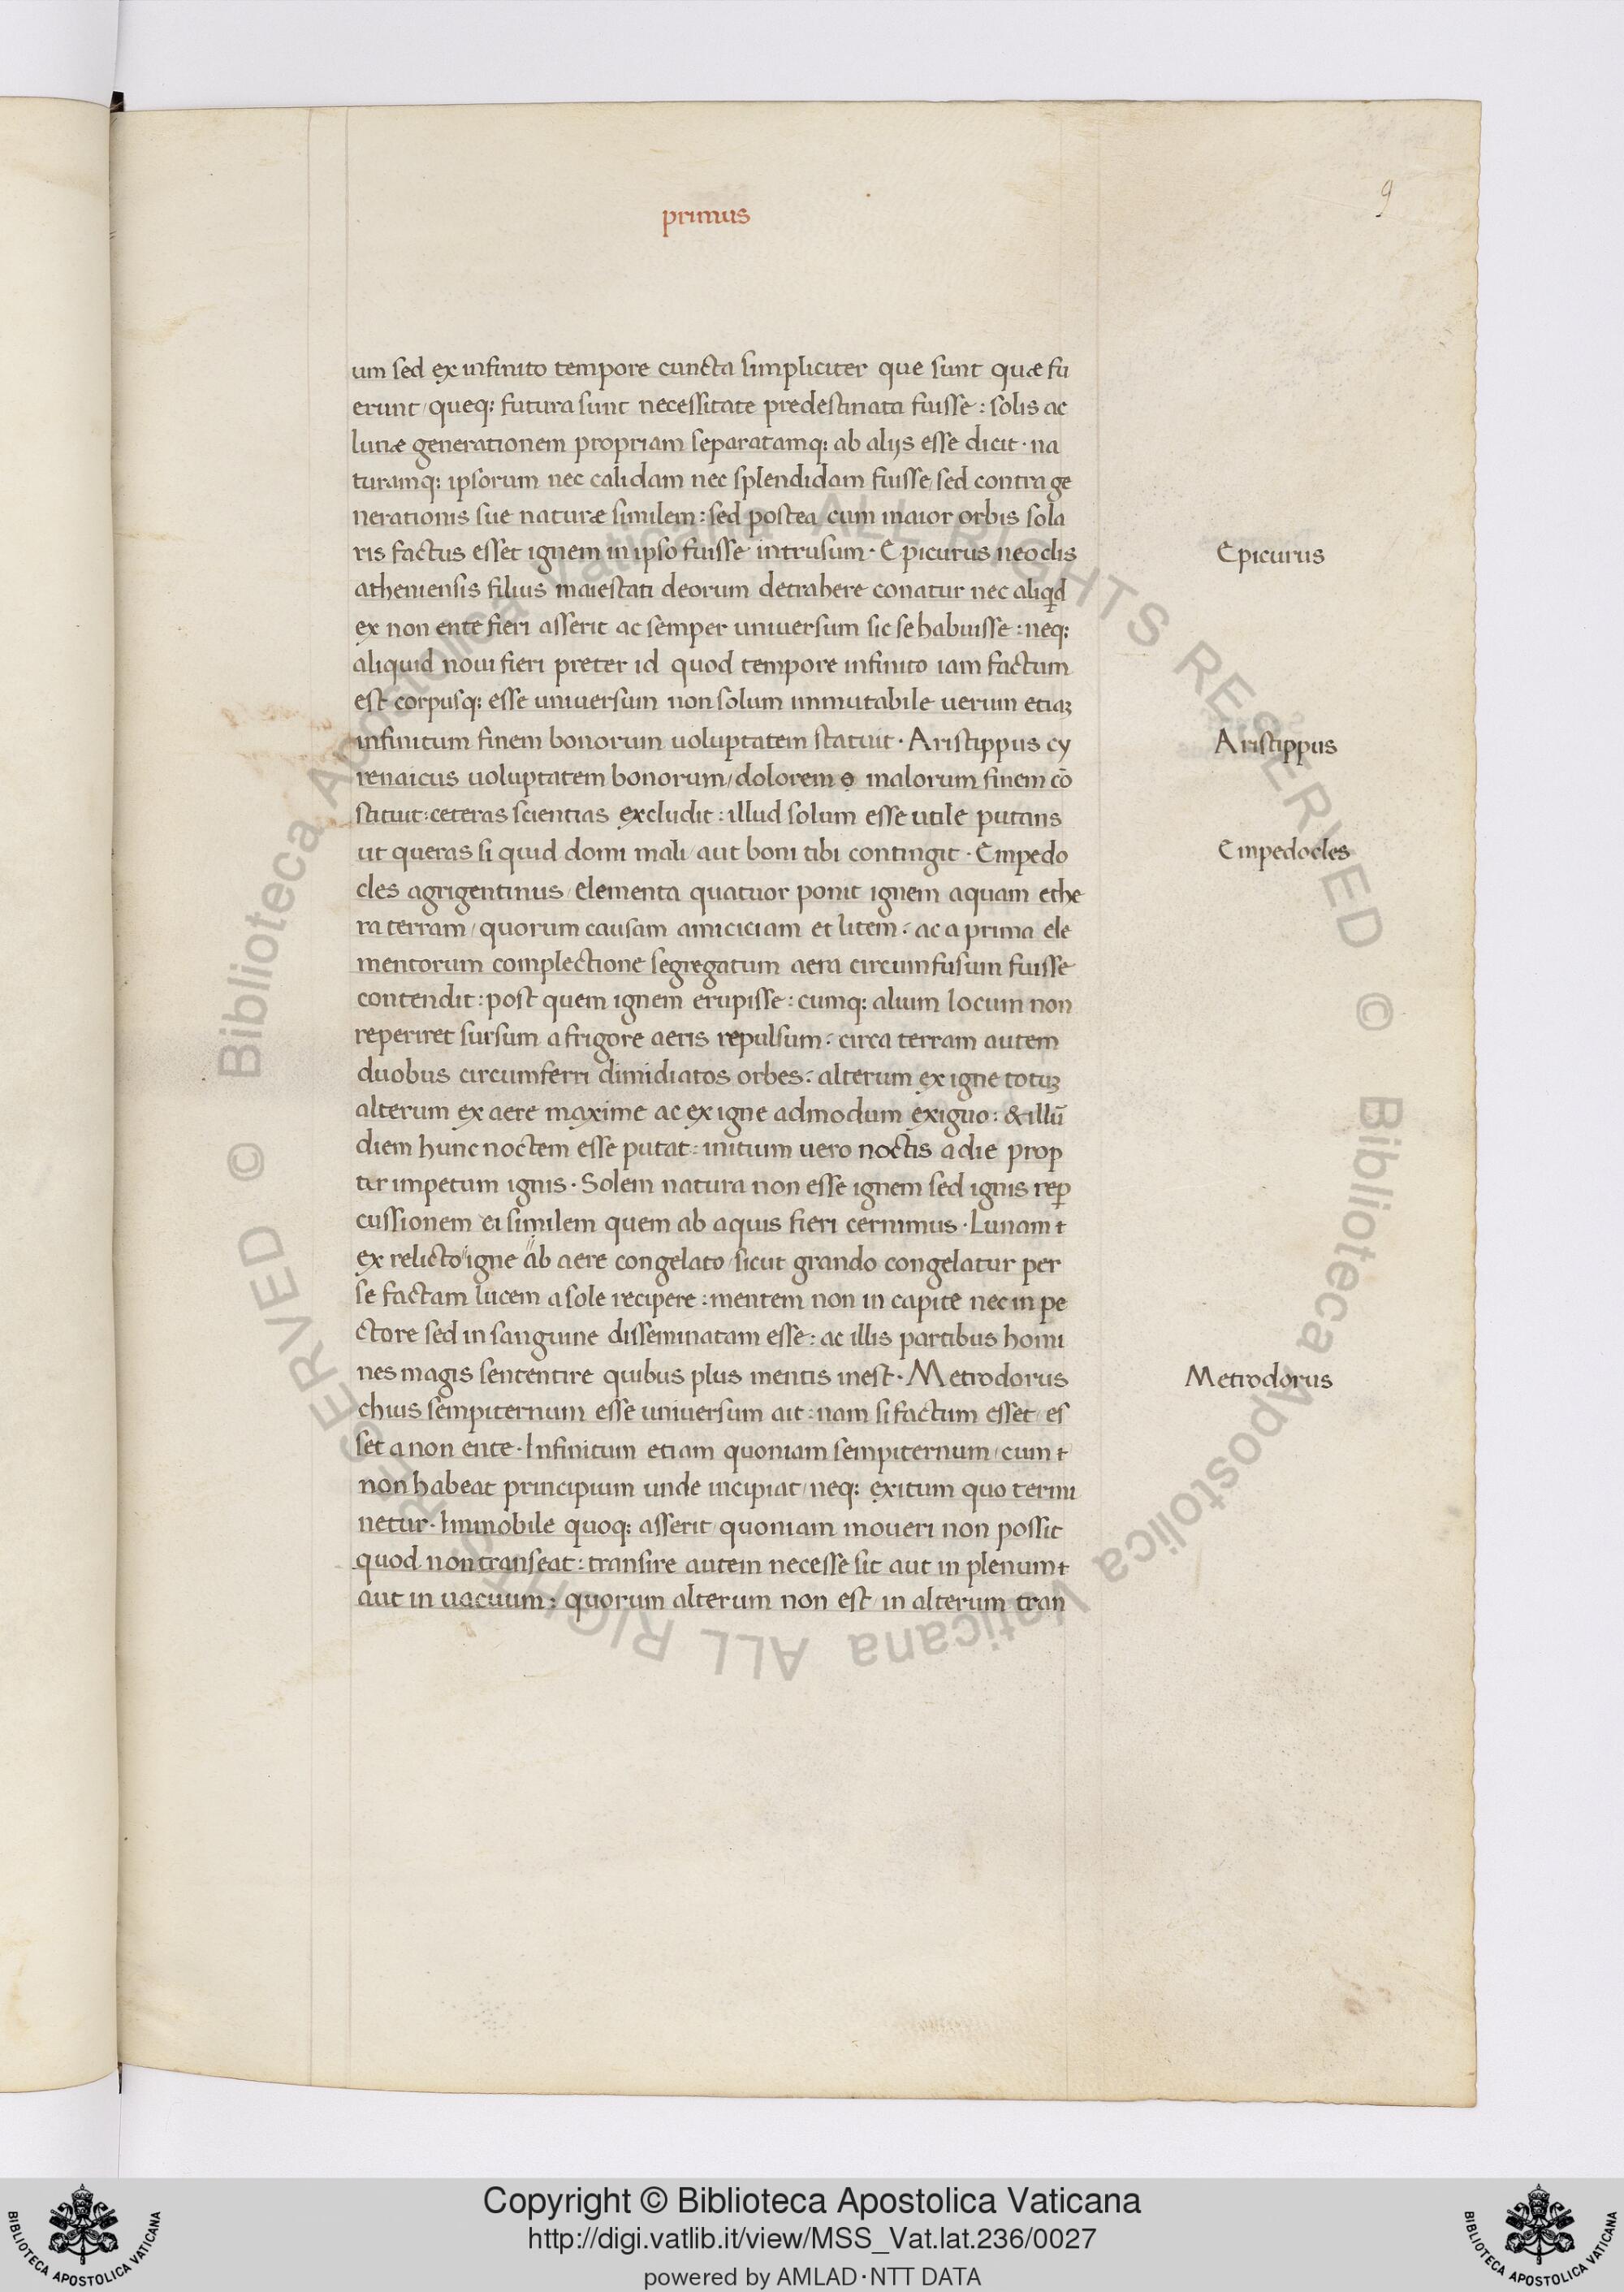 primus
9
um sed ex infinito tempore cuncta simpliciter que sunt quæ fu
erunt / queq: futura sunt necessitate predestinata fuisse : solis ac
lunæ generationem propriam separatamq: ab alijs esse dicit · na
turamq: ipsorum nec calidam nec splendidam fuisse / sed contra ge
nerationis sue naturæ similem : sed postea cum maior orbis sola
ris factus esset ignem in ipso fuisse intrusum · Epicurus neoclis
Epicurus
atheniensis filius maiestati deorum detrahere conatur nec aliqd
ex non ente fieri asserit ac semper universum sic se habuisse : neq:
aliquid noui fieri preter id quod tempore infinito iam factum
est corpusq: esse universum non solum immutabile uerum etiaʒ
infinitum finem bonorum uoluptatem statuit · Aristippus cy
Aristippus
renaicus uoluptatem bonorum / dolorem malorum finem cō
stituit : ceteras scientias excludit : illud solum esse utile putans
ut queras si quid domi mali / aut boni tibi contingit · Empedo
Empedocles
cles agrigentinus / elementa quatuor ponit ignem aquam ethe
ra terram / quorum causam amiciciam et litem : ac a prima ele
mentorum complectione segregatum aera circumfusum fuisse
contendit : post quem ignem erupisse : cumq: alium locum non
reperiret sursum a frigore aeris repulsum : circa terram autem
duobus circumferri dimidiatos orbes : alterum ex igne totuʒ
alterum ex aere maxime ac ex igne admodum exiguo : & illū
diem hunc noctem esse putat : initium uero noctis a die prop
ter impetum ignis · Solem natura non esse ignem sed ignis reꝑ
cussionem ei similem quem ab aquis fieri cernimus · Lunam
ex relicto igne ab aere congelato / sicut grando congelatur per
se factam lucem a sole recipere : mentem non in capite nec in pe
ctore sed in sanguine disseminatam esse : ac illis partibus homi
nes magis sententire quibus plus mentis inest · Metrodorus
Metrodorus
chius sempiternum esse universum ait : nam si factum esset / es
set a non ente · Infinitum etiam quoniam sempiternum / cum
non habeat principium unde incipiat / neq: exitum quo termi
netur · Immobile quoq: asserit / quoniam moueri non possit
quod non transeat : transire autem necesse sit aut in plenum
aut in uacuum : quorum alterum non est / in alterum tran
© Biblioteca Apostolica Vaticana ALL RIGHTS RESERVED © Biblioteca Apostolica Vaticana ALL RIGHTS RESERVED
BIBLIOTECA APOSTOLICA VATICANA
Copyright © Biblioteca Apostolica Vaticana
http://digi.vatlib.it/view/MSS_Vat.lat.236/0027
powered by AMLAD·NTT DATA
BIBLIOTECA APOSTOLICA VATICANA